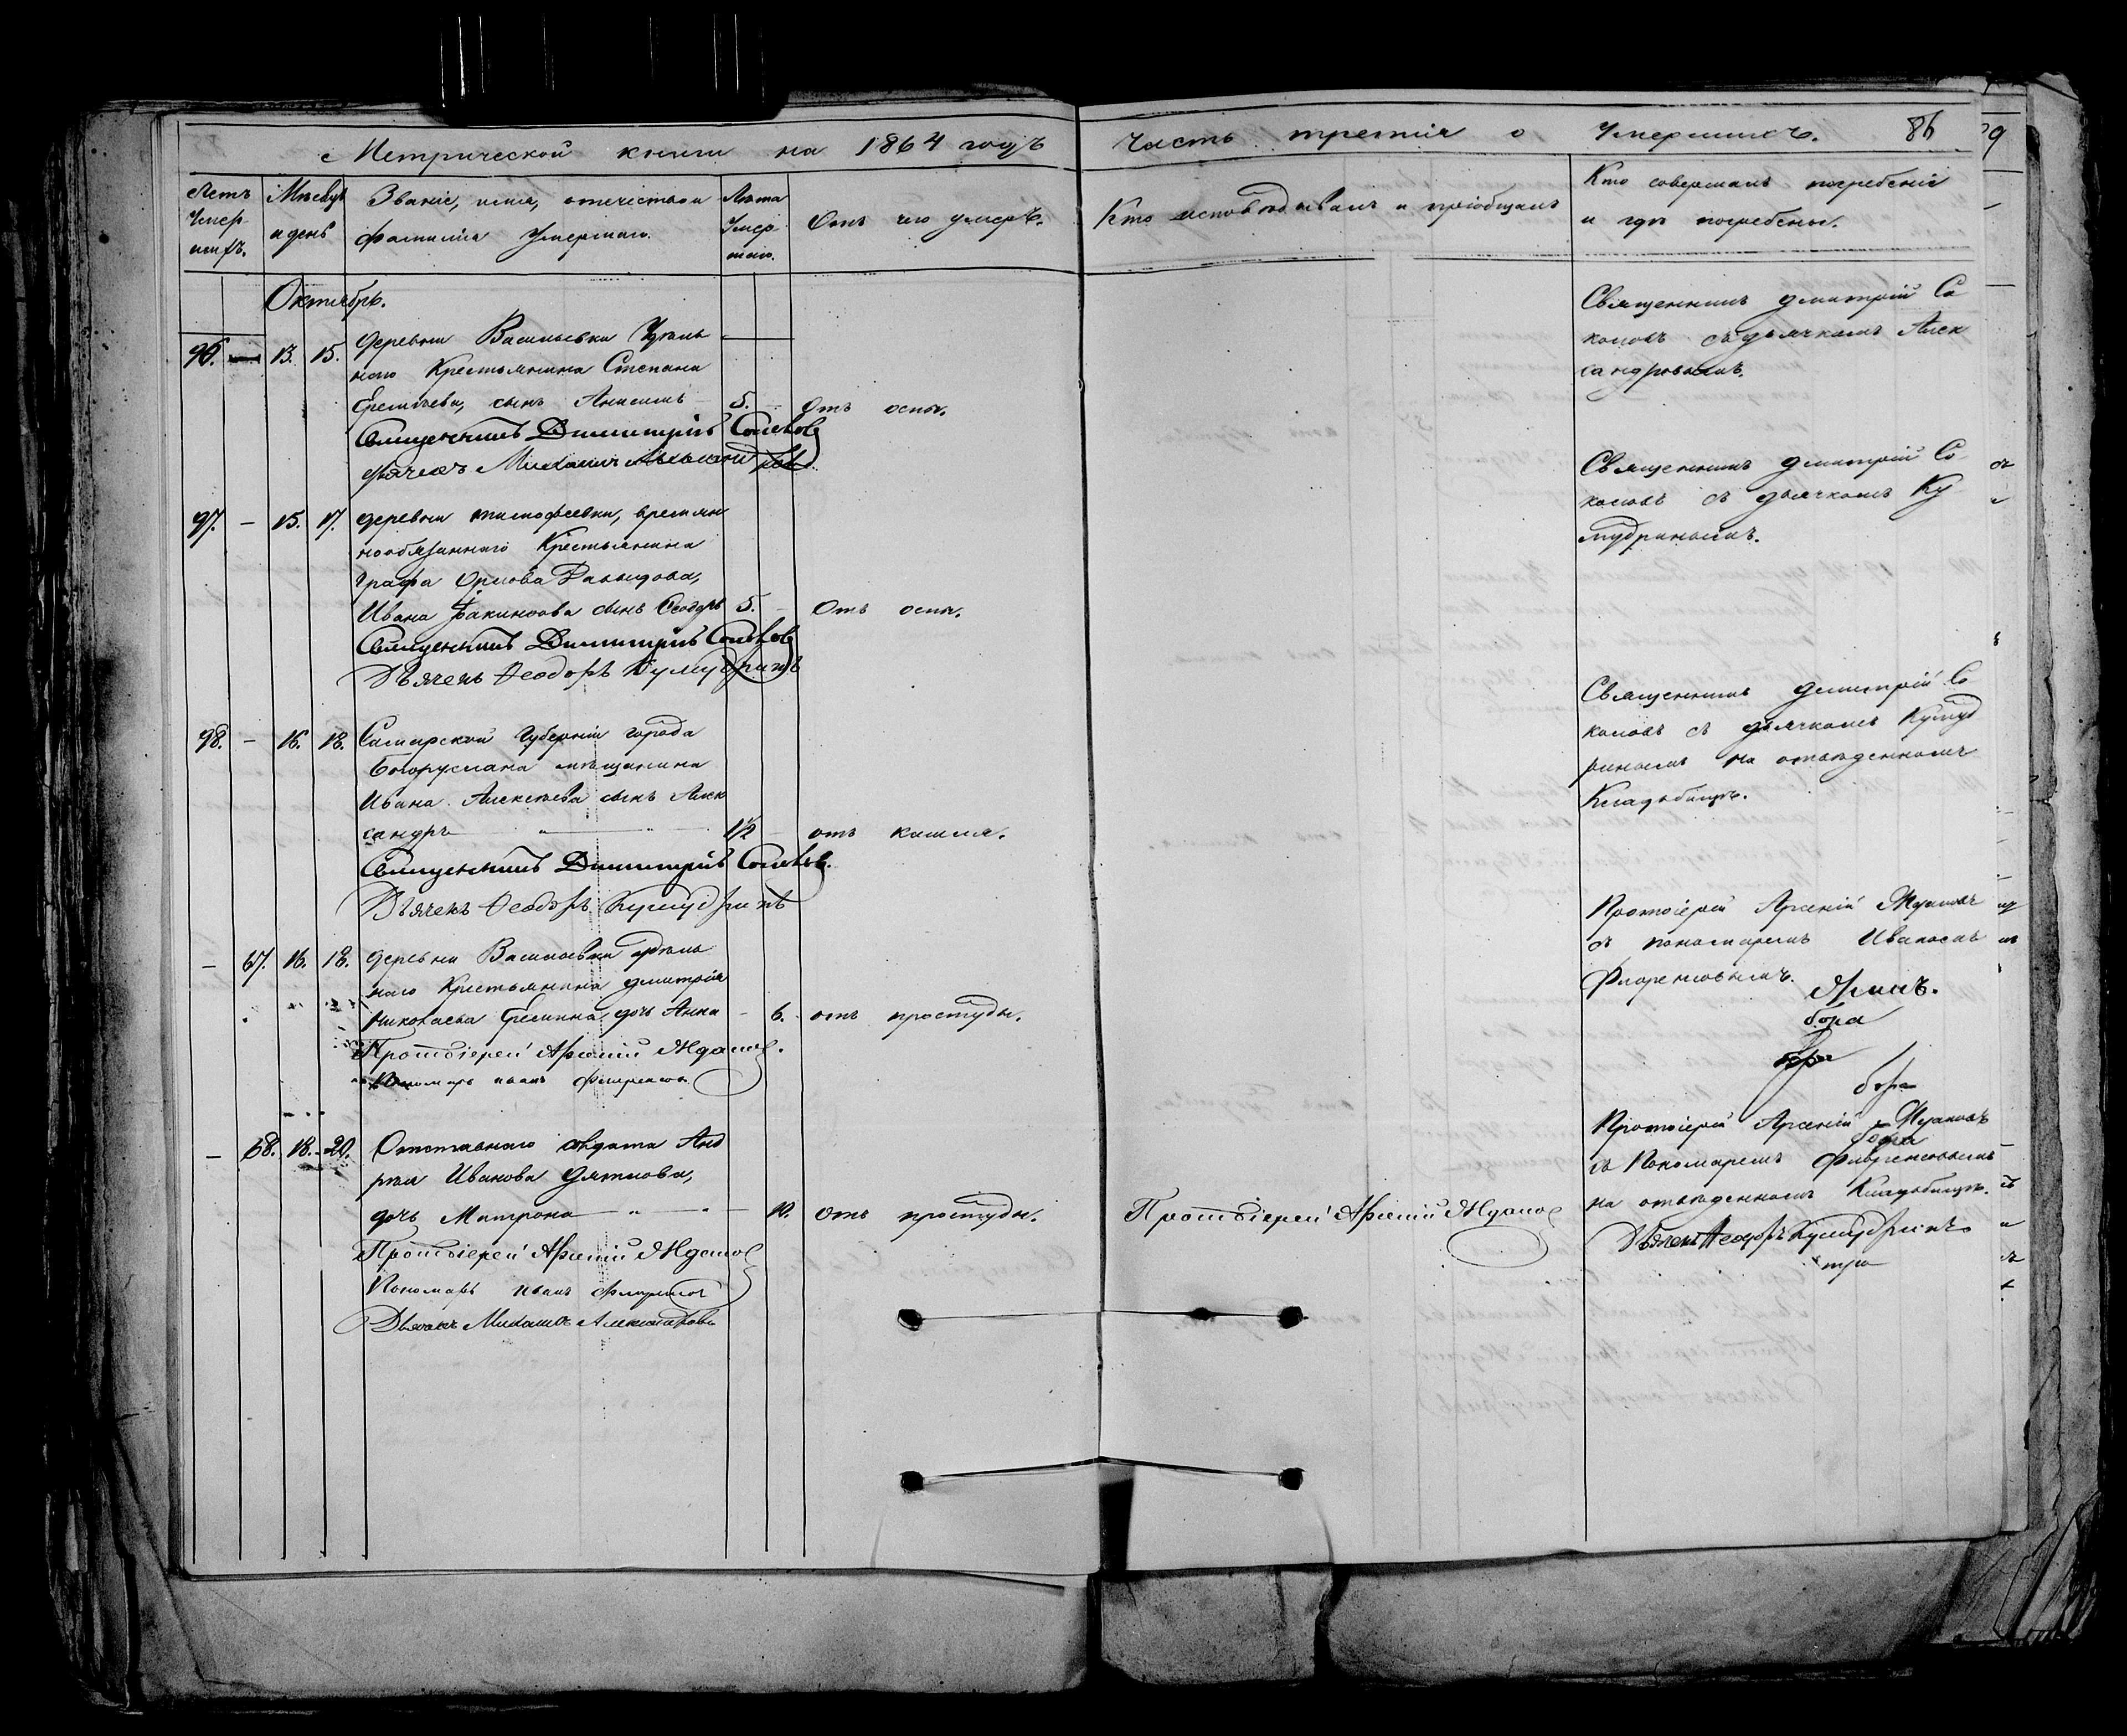 Метрической книги на 1864 годъ
Часть третія о Умершихъ. 86
Счетъ Умер-
шихъ.
Мѣсяцъ
и день
Званіе, имя, отечество и
фамилія Умершаго.
Лѣта
Умер-
шаго.
Отъ чего умеръ.
Кто исповѣдывалъ и пріобщалъ
Кто совершалъ погребеніе
и гдѣ погребены.
Октябрь.
96. 13. 15. деревни Васильевки Удѣль-
наго Крестьянина Степана
Еремѣева, сынъ Анисимъ 5. Отъ оспы.
Священникъ Димитрій Соколовъ
Дьячекъ Михаилъ Александровъ
Священникъ Дмитрій Со
коловъ съ дьячкомъ Алек
сандровымъ.
97. – 15. 17. деревни Тимофеевки, времян
нообязаннаго Крестьянина
Графа Орлова Давыдова,
Ивана сынъ Ѳеодоръ 5. – Отъ оспы.
Священникъ Димитрій Соколовъ
Дьячекъ Ѳеодоръ Кумудринъ
Священникъ Дмитрій Со
коловъ съ дьячкомъ Ку
мудринымъ.
98. – 16. 18. Самарской Губерніи города
Бугуруслана мѣщанина
Ивана Алексѣева сынъ Алек
сандръ — " — " — 1/2 – отъ кашля.
Священникъ Димитрій Соколовъ.
Дьячекъ Ѳеодоръ Кумудринъ
Священникъ Дмитрій Со
коловъ съ дьячкомъ Кумуд
ринымъ на отведенномъ
Кладбищѣ.
– 67. 16. 18. деревни Васильевки удѣль
наго Крестьянина Дмитрія
Николаева Еремина дочь Анна – 6. отъ простуды.
Протоіерей Арсеній Ждановъ.
Пономарь Иванъ Флоренсовъ
Протоіерей Арсеній Ждановъ
съ пономаремъ Иваномъ
Флоренсовымъ.
бора
бора
бора
– 68. 18. 20. Отставнаго солдата Анд
рея Иванова Дятлова,
дочь Матрона — " — " — 10. отъ простуды.
Протоіерей Арсеній Ждановъ
Пономарь Иванъ Флоренсовъ
Дьячекъ Михаилъ Александровъ
Протоіерей Арсеній Ждановъ
Протоіерей Арсеній Ждановъ
съ Пономаремъ Флоренсовымъ
на отведенномъ Кладбищѣ.
Дьячекъ Ѳеодоръ Кумудринъ